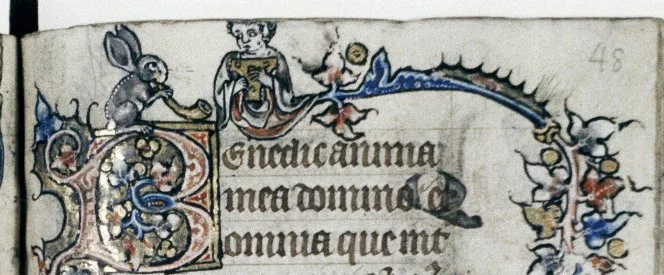 48
Benedic anima
mea domino et
omnia que int